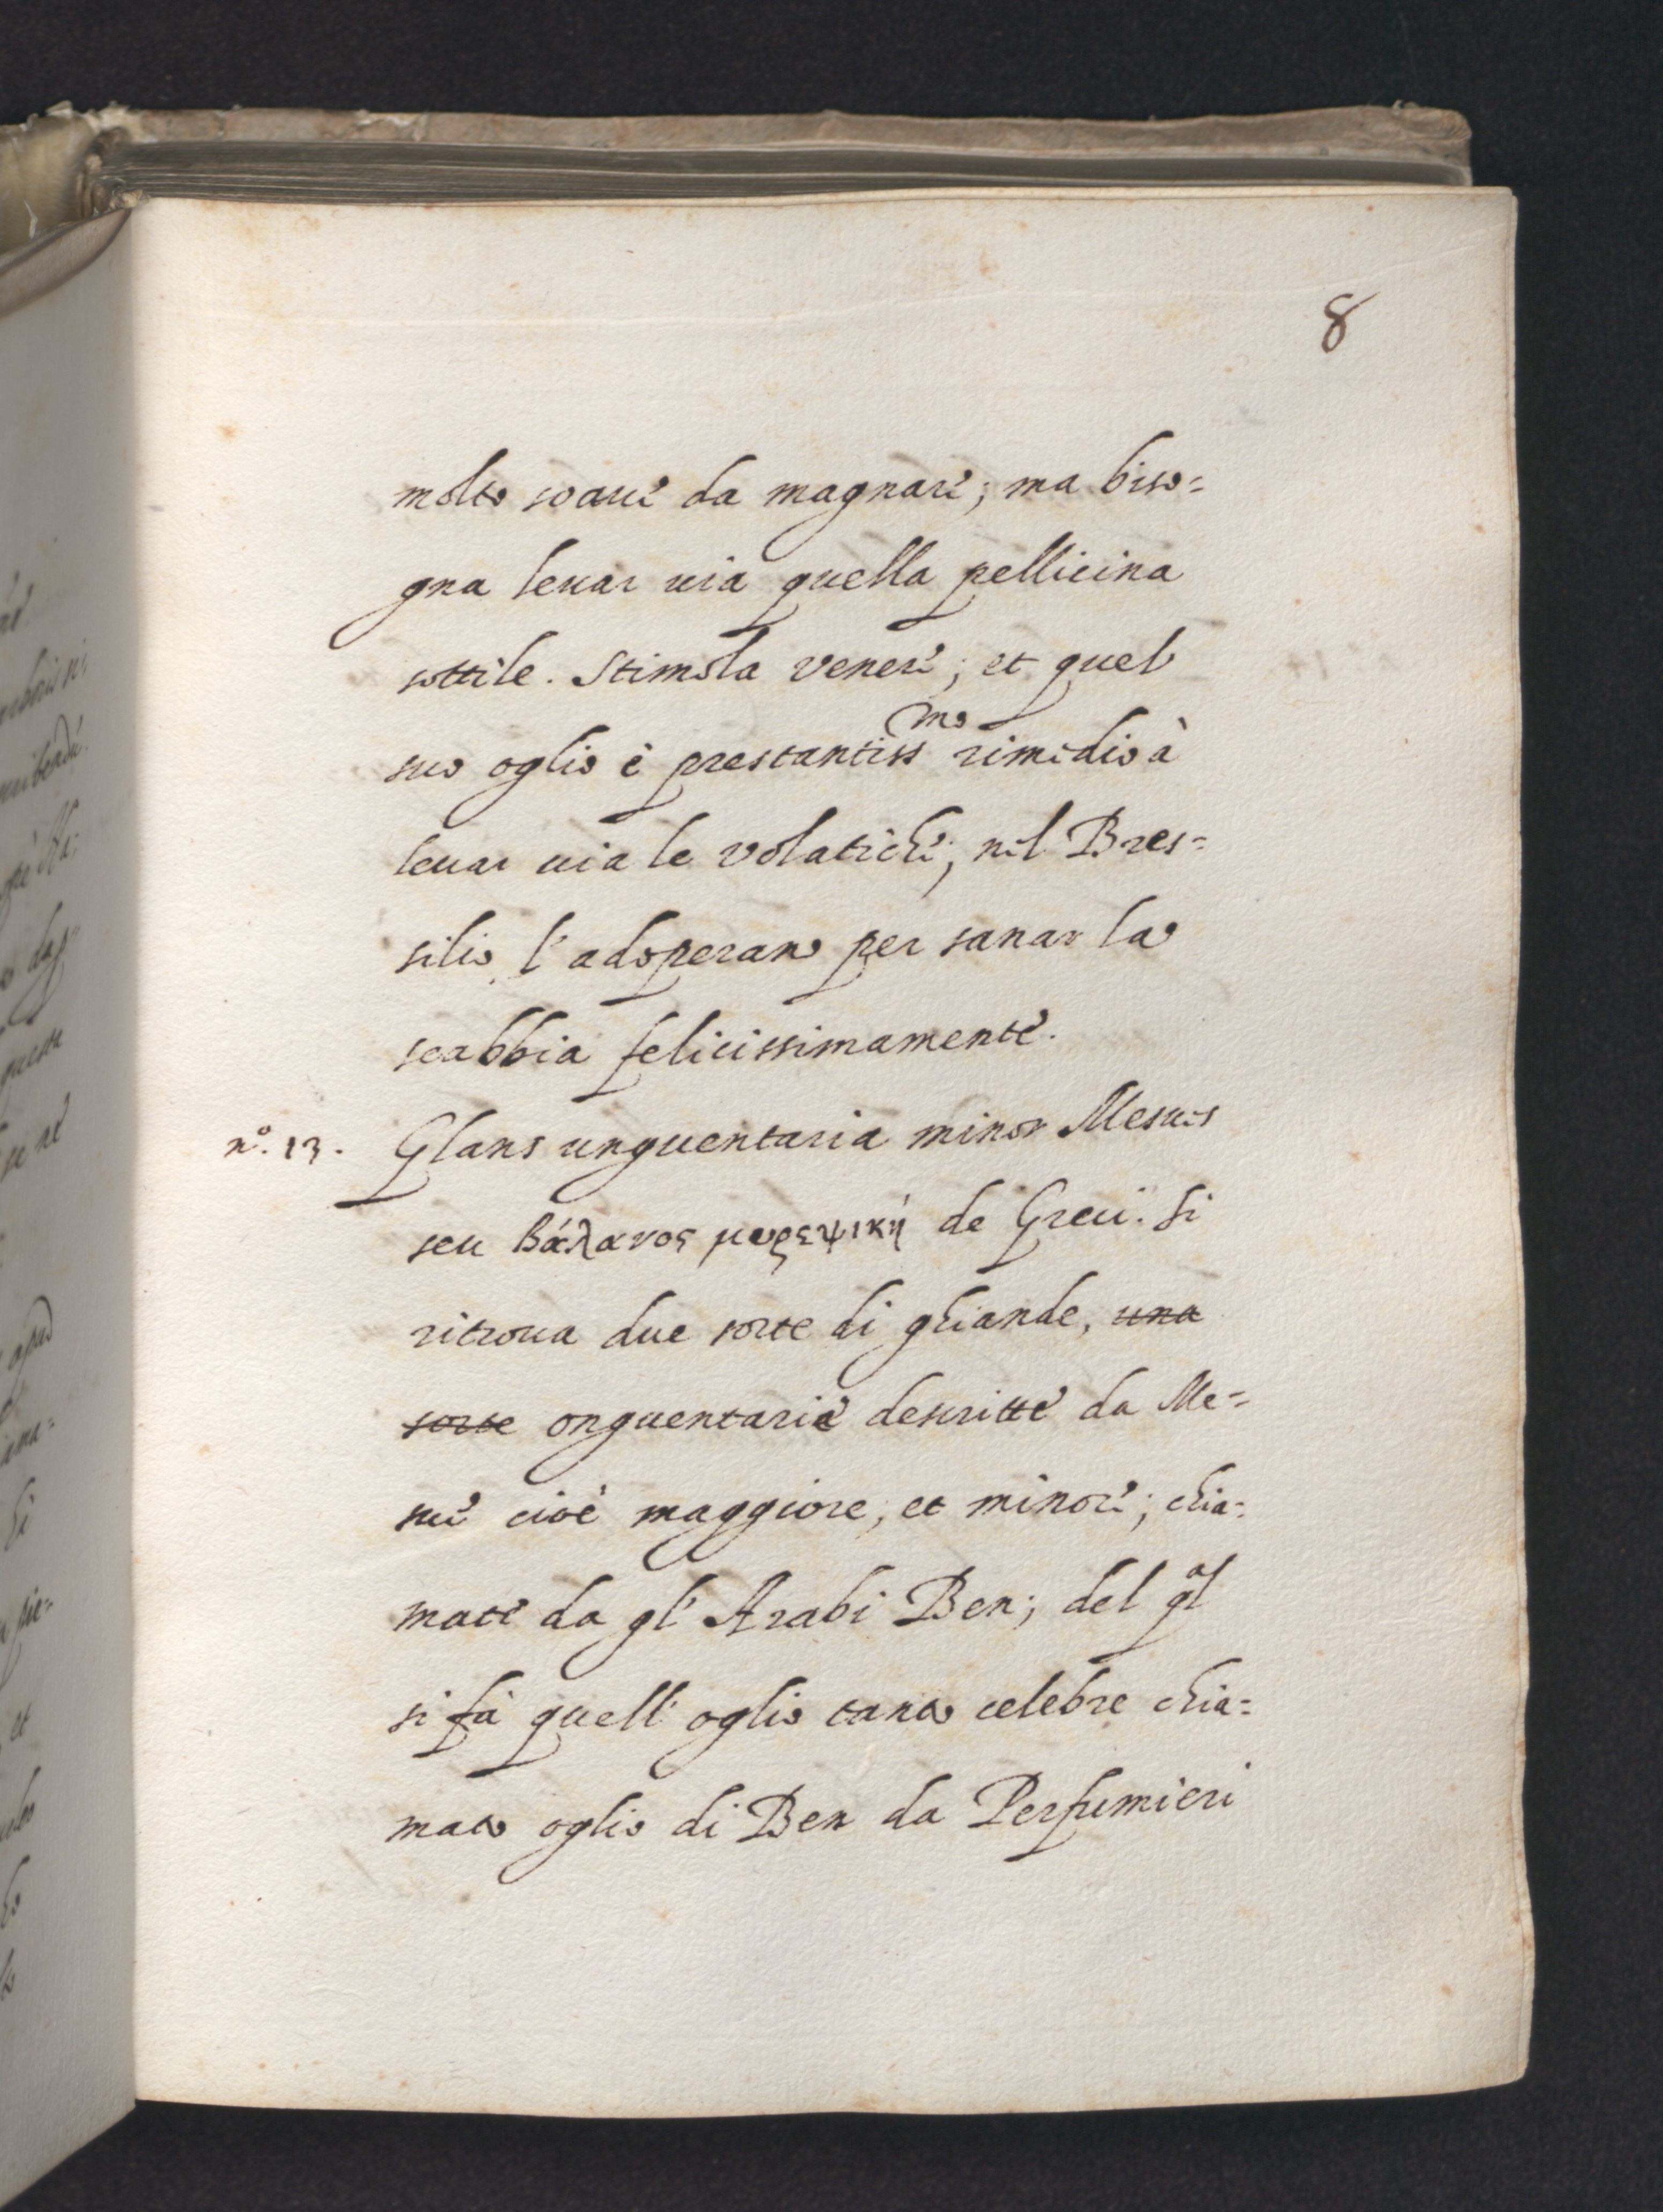 8
molto soaue da magnare; ma biso=
gna leuar uia quella pellicina
sottile. Stimola venere; et quel
suo oglio è prestantissmo rimedio à
leuar uia le volatiche; nel Bres=
silio l'adoperano per sanar la
scabbia felicissimamente.
n.º 13. Glans unguentaria minor Mesues
seu βάλανος μυρεψική de Greci. Si
ritroua due sorte di ghiande, una
sorte onguentarie descritte da Me=
sue cioè maggiore, et minore; chia=
mate da gl' Arabi Ben; del qal
si fà quell' oglio tanto celebre chia=
mato oglio di Ben da Perfumieri